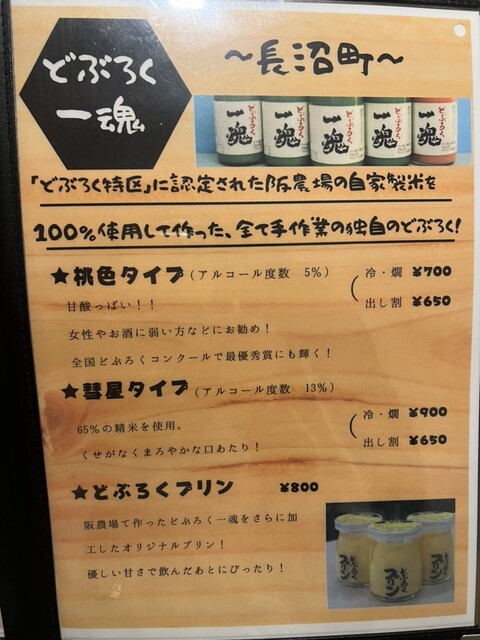 どぶろく
一魂
～長沼町～
どぶろく 一魂 どぶろく 一魂 どぶろく 一魂 どぶろく 一魂 どぶろく 一魂
「どぶろく特区」に認定された阪農場の自家製米を
100%使用して作った、全て手作業の独自のどぶろく!
★桃色タイプ(アルコール度数 5%) 冷・燗 ¥700
甘酸っぱい!! 出し割 ¥650
女性やお酒に弱い方などにお勧め!
全国どぶろくコンクールで最優秀賞にも輝く!
★彗星タイプ(アルコール度数 13%)
冷・燗 ¥900
65%の精米を使用。
出し割 ¥650
くせがなくまろやかな口あたり!
★どぶろくプリン ¥800
阪農場で作ったどぶろく一魂をさらに加
工したオリジナルプリン!
優しい甘さで飲んだあとにぴったり!
どぶろく プリン どぶろく プリン